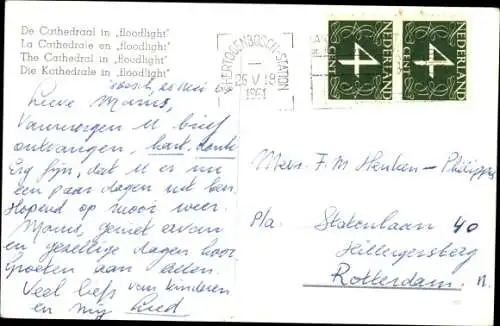 De Cathedraal in „floodlight"
La Cathedrale en „floodlight"
The Cathedral in „floodlight"
Die Kathedrale in „floodlight"
Lieve Mams,
Vanmorgen U brief
ontvangen, hart. dank
Erg fijn, dat U er nu
een paar dagen uit ben.
Hopend op mooi weer.
Mams, geniet ervan
en gezellige dagen hoor
Groeten aan allen.
Veel liefs van kinderen
en mij
'S-HERTOGENBOSCH-STATION
25 V 18
1961
4
CENT
NEDERLAND
4
CENT
NEDERLAND
Mevr. F. M. Henken - Philippi
p/a. Statenlaan 40
Hillegersberg
Rotterdam. N.